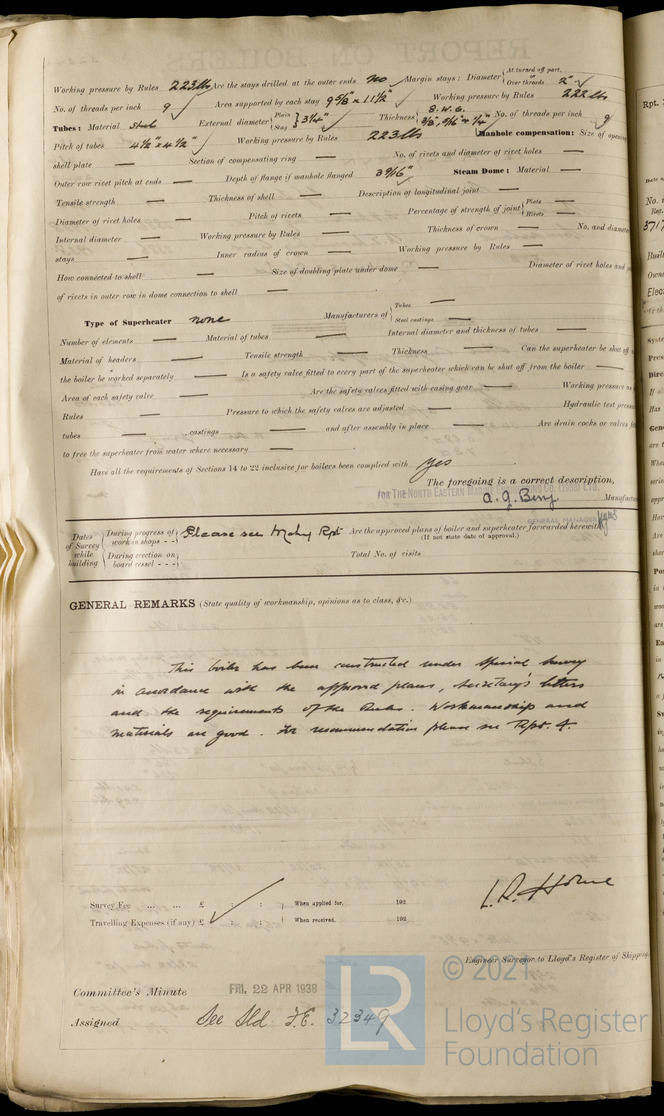 Working pressure by Rules 223 lbs Are the stays drilled at the outer ends no Margin stays: Diameter { At turned off part, or Over threads 2"
No. of threads per inch 9 Area supported by each stay 9 5/8 x 11 1/2" Working pressure by Rules 222 lbs
Tubes: Material Steel External diameter { Plain Stay } 3 1/4" Thickness { 8. W. G. 3/8", 5/16" & 1/4" No. of threads per inch 9
Pitch of tubes 4 1/2" x 4 1/2" Working pressure by Rules 223 lbs Manhole compensation: Size of opening
shell plate — Section of compensating ring — No. of rivets and diameter of rivet holes —
Outer row rivet pitch at ends — Depth of flange if manhole flanged 3 9/16" Steam Dome: Material —
Tensile strength — Thickness of shell — Description of longitudinal joint —
Diameter of rivet holes — Pitch of rivets — Percentage of strength of joint { Plate — Rivets —
Internal diameter — Working pressure by Rules — Thickness of crown — No. and diameter
stays — Inner radius of crown — Working pressure by Rules —
How connected to shell — Size of doubling plate under dome — Diameter of rivet holes and
of rivets in outer row in dome connection to shell —
Type of Superheater none Manufacturers of { Tubes — Steel castings —
Number of elements — Material of tubes — Internal diameter and thickness of tubes —
Material of headers — Tensile strength — Thickness — Can the superheater be shut off
the boiler be worked separately — Is a safety valve fitted to every part of the superheater which can be shut off from the boiler —
Area of each safety valve — Are the safety valves fitted with easing gear — Working pressure as
Rules — Pressure to which the safety valves are adjusted — Hydraulic test press
tubes — castings — and after assembly in place — Are drain cocks or valves
to free the superheater from water where necessary —
Have all the requirements of Sections 14 to 22 inclusive for boilers been complied with yes
The foregoing is a correct description,
FOR THE NORTH EASTERN MARINE ENGINEERING CO. (1938) LTD.
Manufact
GENERAL MANAGER
Dates of Survey while building { During progress of work in shops - - } Please see Mchy Rpt Are the approved plans of boiler and superheater forwarded herewith
(If not state date of approval.)
{ During erection on board vessel - - - } Total No. of visits
GENERAL REMARKS (State quality of workmanship, opinions as to class, &c.)
This boiler has been constructed under Special Survey
in accordance with the approved plans, Secretary's letters
and the requirements of the Rules. Workmanship and
materials are good. For recommendation please see Rpt. 4.
Survey Fee ... ... £ : : } When applied for, 192
Travelling Expenses (if any) £ : : } When received, 192
L. R. Horne
Engineer Surveyor to Lloyd's Register of Shipping
Committee's Minute FRI. 22 APR 1938
Assigned See Sld F.E. 32349
LR
© 2021
Lloyd's Register
Foundation